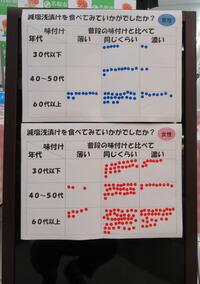 減塩浅漬けを食べてみていかがでしたか？ 男性
味付け 普段の味付けと比べて
年代 薄い 同じくらい 濃い
30代以下
40～50代
60代以上
減塩浅漬けを食べてみていかがでしたか？ 女性
味付け 普段の味付けと比べて
年代 薄い 同じくらい 濃い
30代以下
40～50代
60代以上